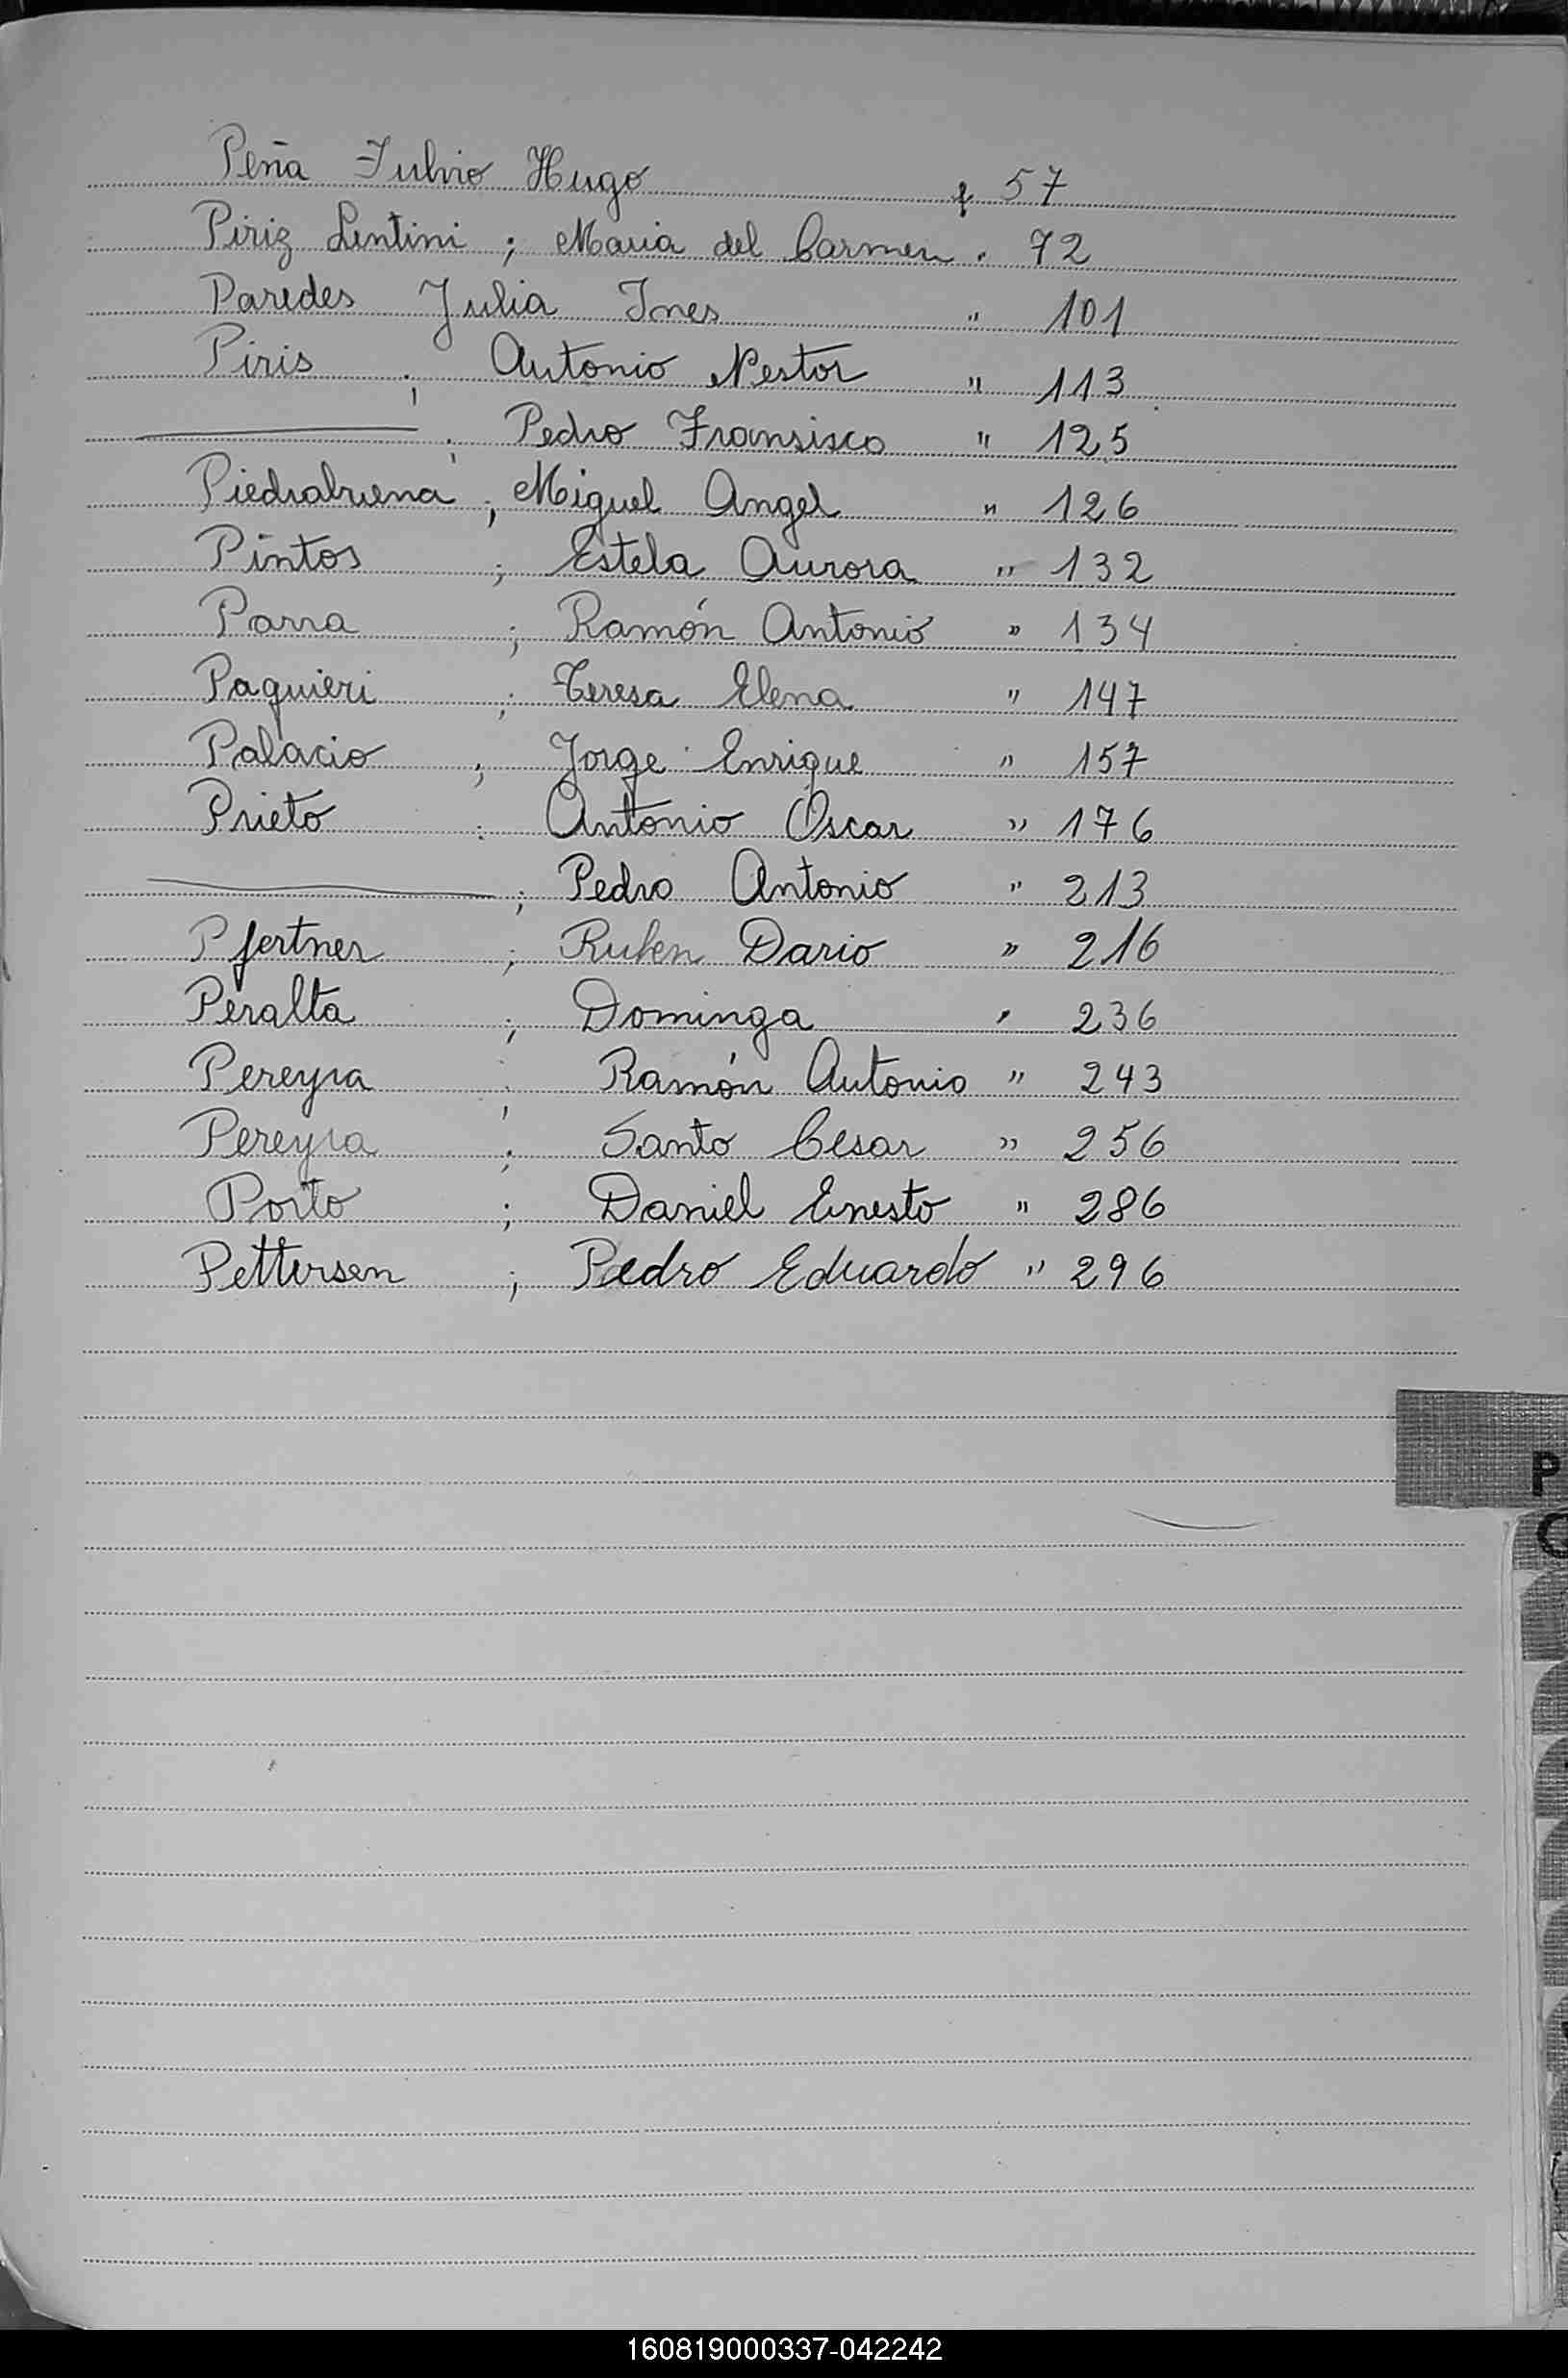 Peña Fulvio Hugo f 57
Piriz Lentini ; Maria del Carmen " 72
Paredes Julia Ines " 101
Piris ; Antonio Nestor " 113
——— ; Pedro Fransisco " 125
Piedrabuena ; Miguel Angel " 126
Pintos ; Estela Aurora " 132
Parra ; Ramón Antonio " 134
Paquieri ; Teresa Elena " 147
Palacio ; Jorge Enrique " 157
Prieto : Antonio Oscar " 176
——— ; Pedro Antonio " 213
Pfertner ; Ruben Dario " 216
Peralta ; Dominga " 236
Pereyra ; Ramón Antonio " 243
Pereyra ; Santo Cesar " 256
Porto ; Daniel Ernesto " 286
Pettersen ; Pedro Eduardo " 296
P
160819000337-042242